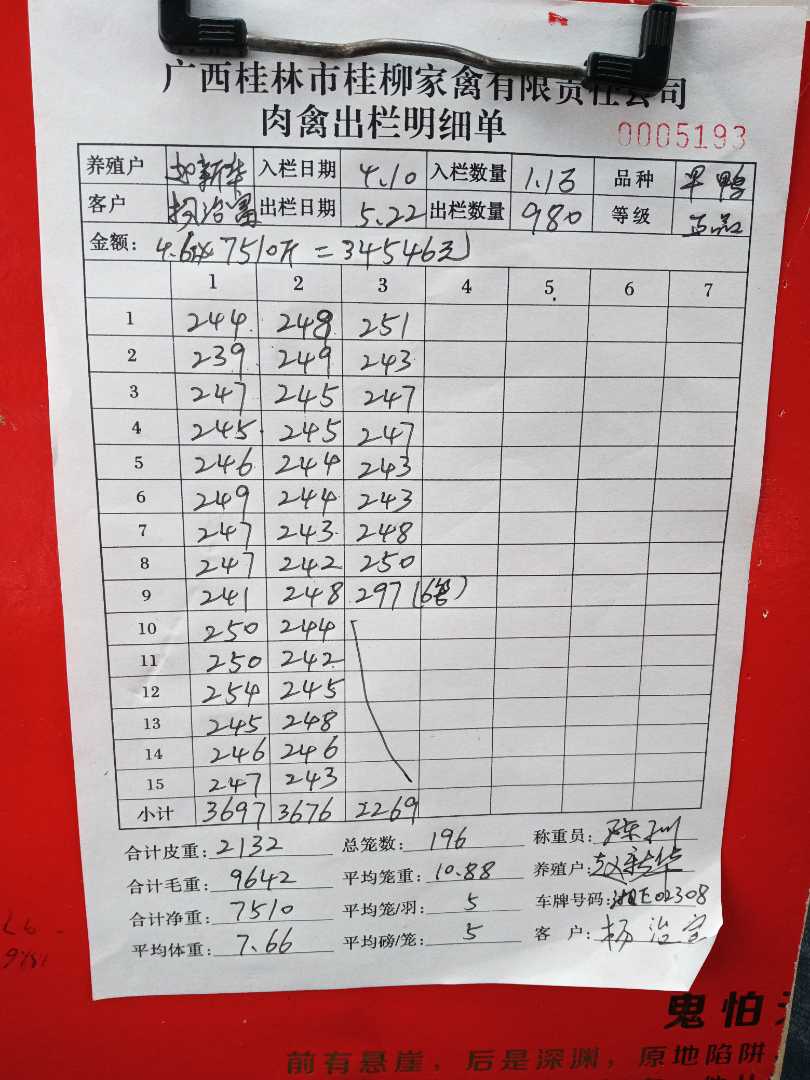 广西桂林市桂柳家禽有限责任公司
肉禽出栏明细单
0005193
养殖户 赵新华 入栏日期 4.10 入栏数量 1.1 品种 鸭
客户 杨治富 出栏日期 5.22 出栏数量 980 等级 正品
金额: 4.6 7510斤 = 34546元
1 2 3 4 5 6 7
1 244 248 251
2 239 249 243
3 247 245 247
4 245 245 247
5 246 244 243
6 249 244 243
7 247 243 248
8 247 242 250
9 241 248 297 (6笼)
10 250 244
11 250 242
12 254 245
13 245 248
14 246 246
15 247 243
小计 3697 3676 2269
合计皮重: 2132 总笼数: 196 称重员: 陈
合计毛重: 9642 平均笼重: 10.88 养殖户: 赵新华
合计净重: 7510 平均笼/羽: 5 车牌号码: 湘E02308
平均体重: 7.66 平均磅/笼: 5 客 户: 杨治
鬼怕
前有悬崖,后是深渊,原地陷阱,